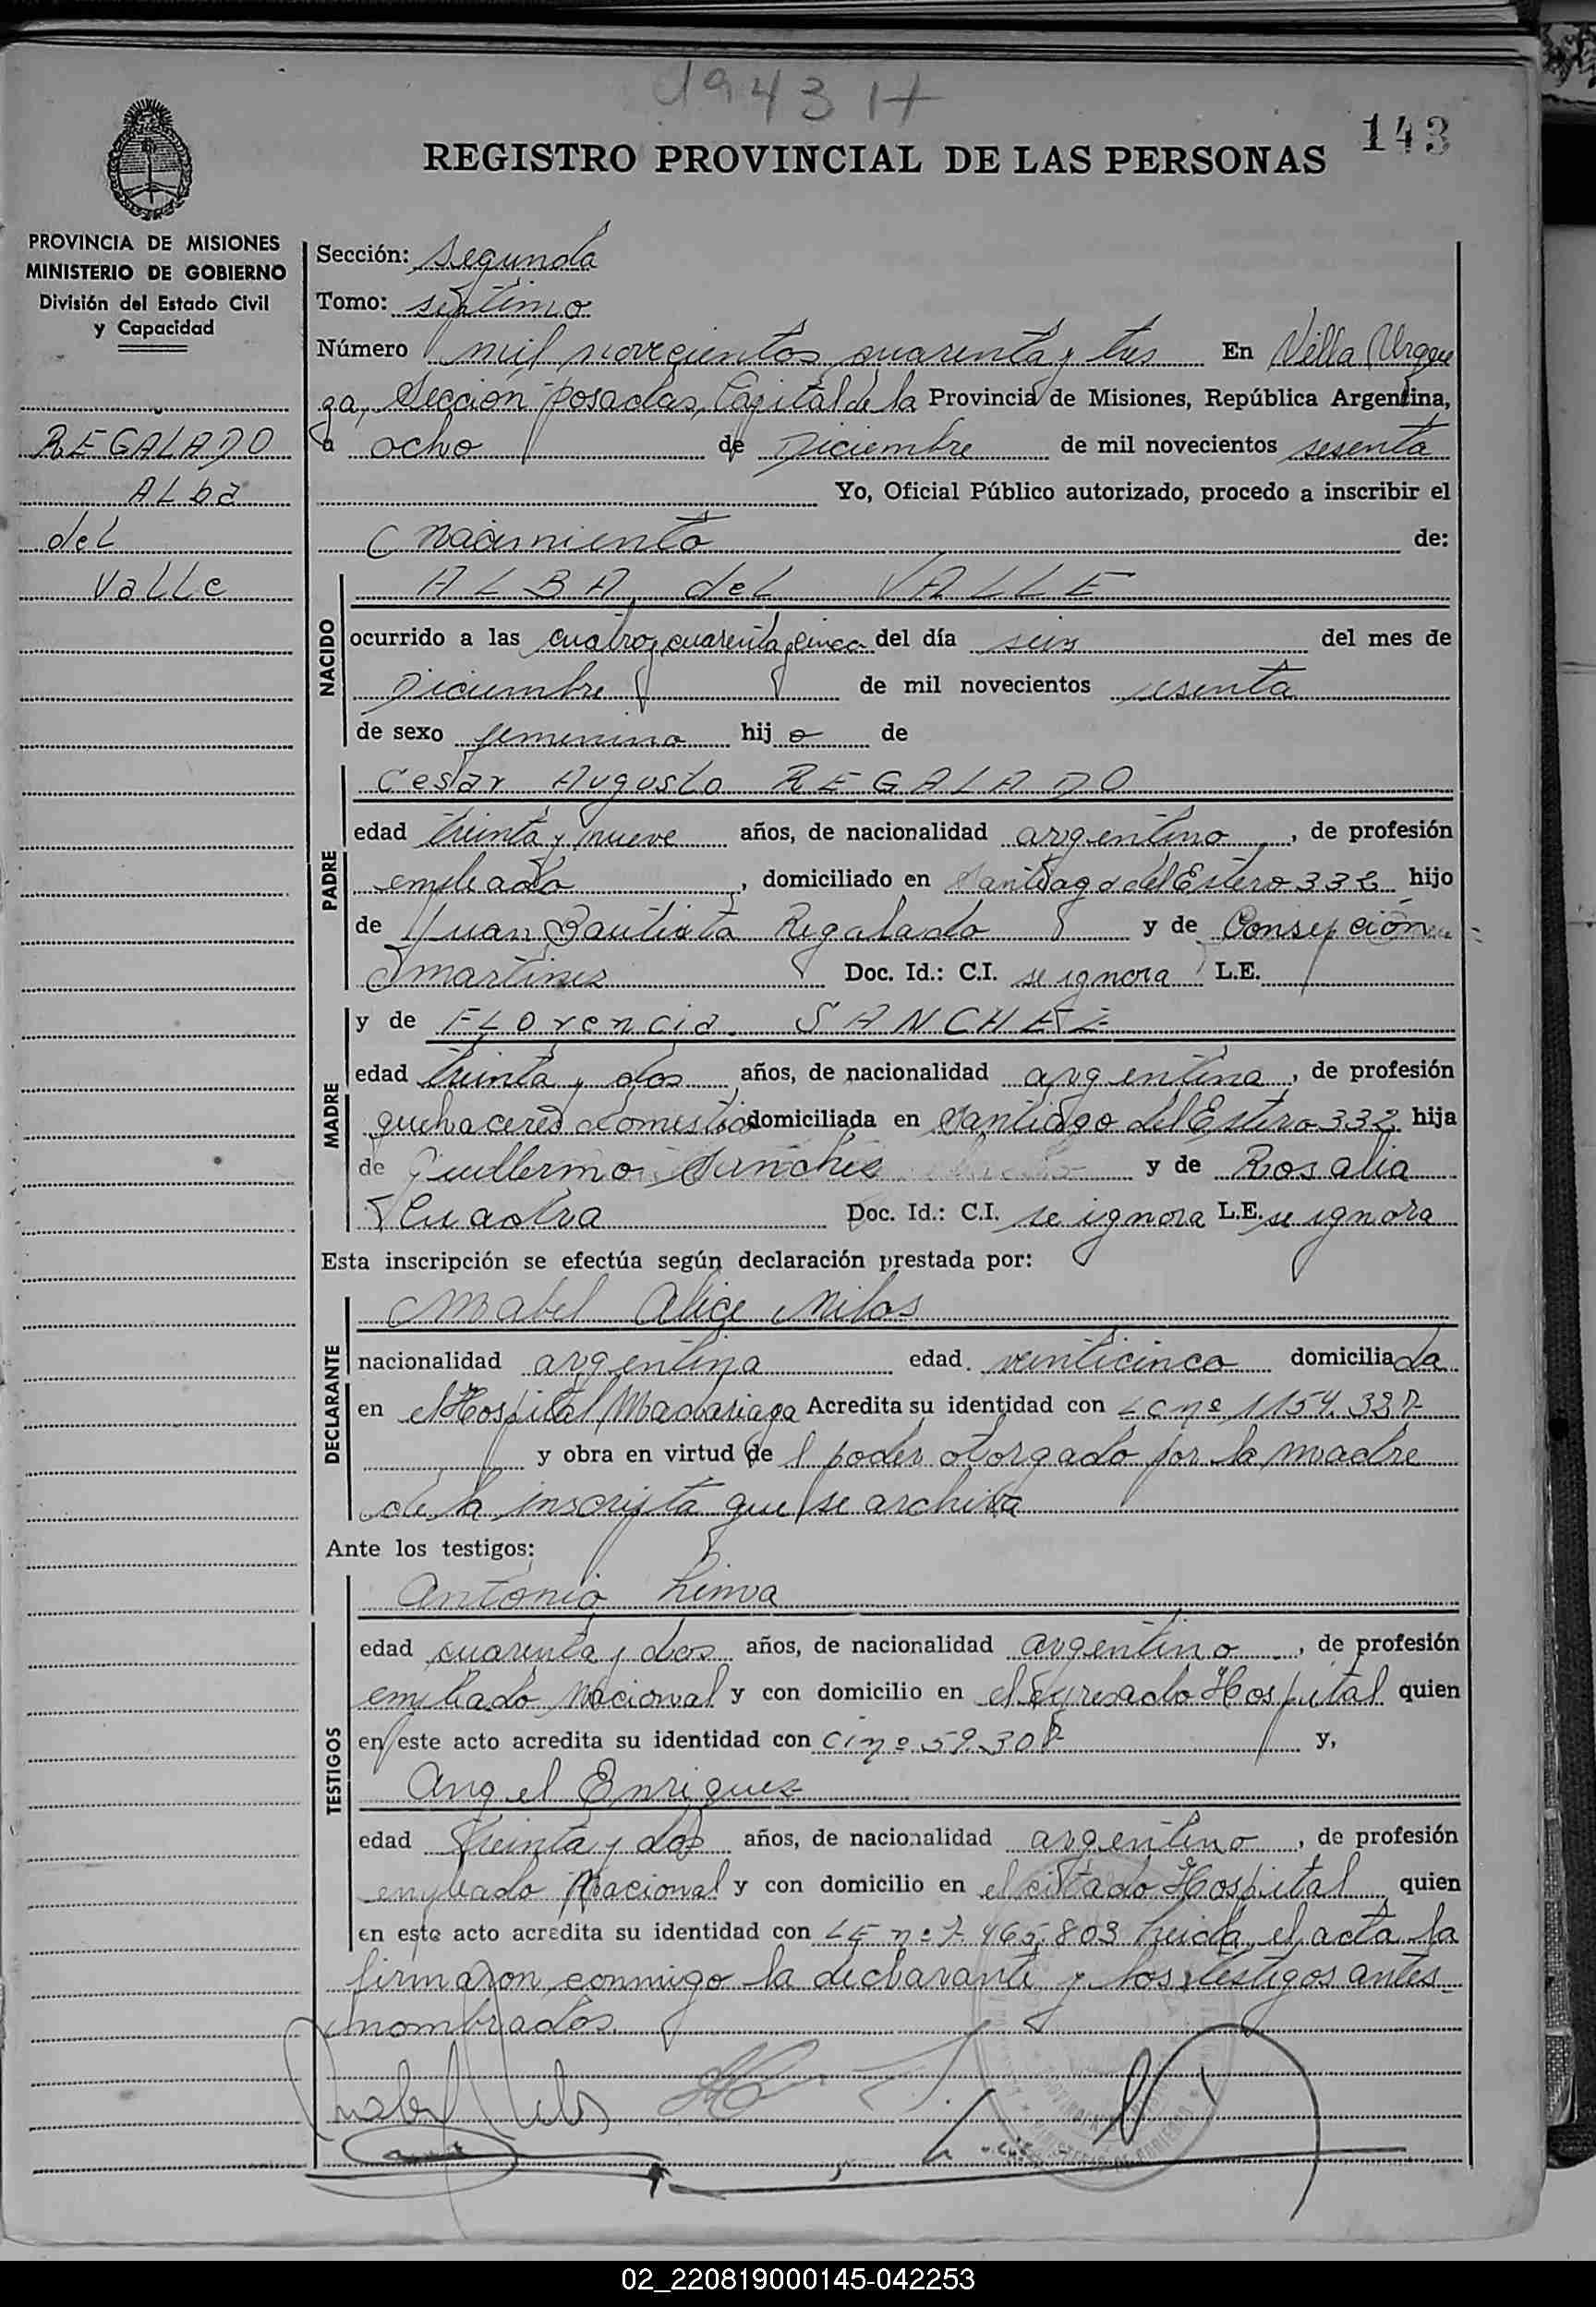 1943 H
143
REGISTRO PROVINCIAL DE LAS PERSONAS
PROVINCIA DE MISIONES
MINISTERIO DE GOBIERNO
División del Estado Civil
y Capacidad
REGALADO
ALba
del
VaLLe
Sección: Segunda
Tomo: séptimo
Número mil novecientos cuarenta y tres En Villa Urqui
za, Sección Posadas, Capital de la Provincia de Misiones, República Argentina,
a ocho de Diciembre de mil novecientos sesenta
Yo, Oficial Público autorizado, procedo a inscribir el
nacimiento de:
NACIDO
ALBA deL VALLE
ocurrido a las cuatro y cuarenta y cinco del día seis del mes de
Diciembre de mil novecientos sesenta
de sexo femenino hij a de
PADRE
Cesar Augusto REGALADO
edad treinta y nueve años, de nacionalidad argentino, de profesión
empleado, domiciliado en Santiago del Estero 332 hijo
de Juan Bautista Regalado y de Consepción
Martinez Doc. Id.: C.I. se ignora L.E.
MADRE
y de FLOrencia SANCHEZ
edad treinta y dos años, de nacionalidad argentina, de profesión
quehaceres domestico domiciliada en Santiago del Estero 332 hija
de Guillermo Sanches y de Rosalia
Doc. Id.: C.I. se ignora L.E. se ignora
Esta inscripción se efectúa según declaración prestada por:
DECLARANTE
Mabel Alice Milos
nacionalidad argentina edad veinticinco domiciliada
en el Hospital Madariaga Acredita su identidad con LC nº 1154.387
y obra en virtud de l poder otorgado por la madre
de la inscripta que se archiva
Ante los testigos:
TESTIGOS
Antonio
edad cuarenta y dos años, de nacionalidad argentino, de profesión
empleado Nacional y con domicilio en el expresado Hospital quien
en este acto acredita su identidad con CI nº 59.307 y,
Angel Enriquez
edad treinta y dos años, de nacionalidad argentino, de profesión
empleado Nacional y con domicilio en el citado Hospital quien
en este acto acredita su identidad con LE nº 7.465.803 Leida el acta la
firmaron conmigo la declarante y los testigos antes
nombrados.
02_220819000145-042253